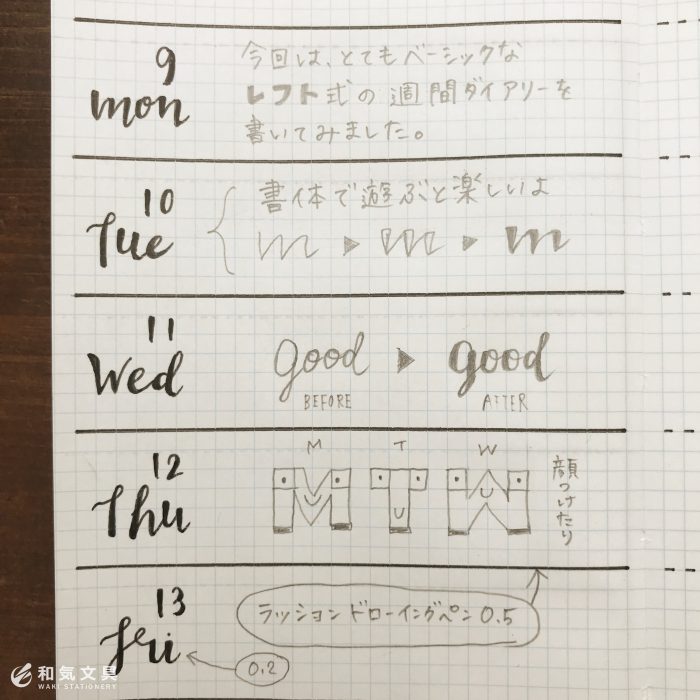 9
mon
今回は、とてもベーシックな
レフト式の週間ダイアリーを
書いてみました。
10
Tue
書体で遊ぶと楽しいよ
m ▶ m ▶ m
11
Wed
good ▶ good
BEFORE ATTER
12
Thu
M T W
M T W
顔つけたり
13
fri
ラッションドローイングペン0.5
0.2
和気文具
WAKI STATIONERY